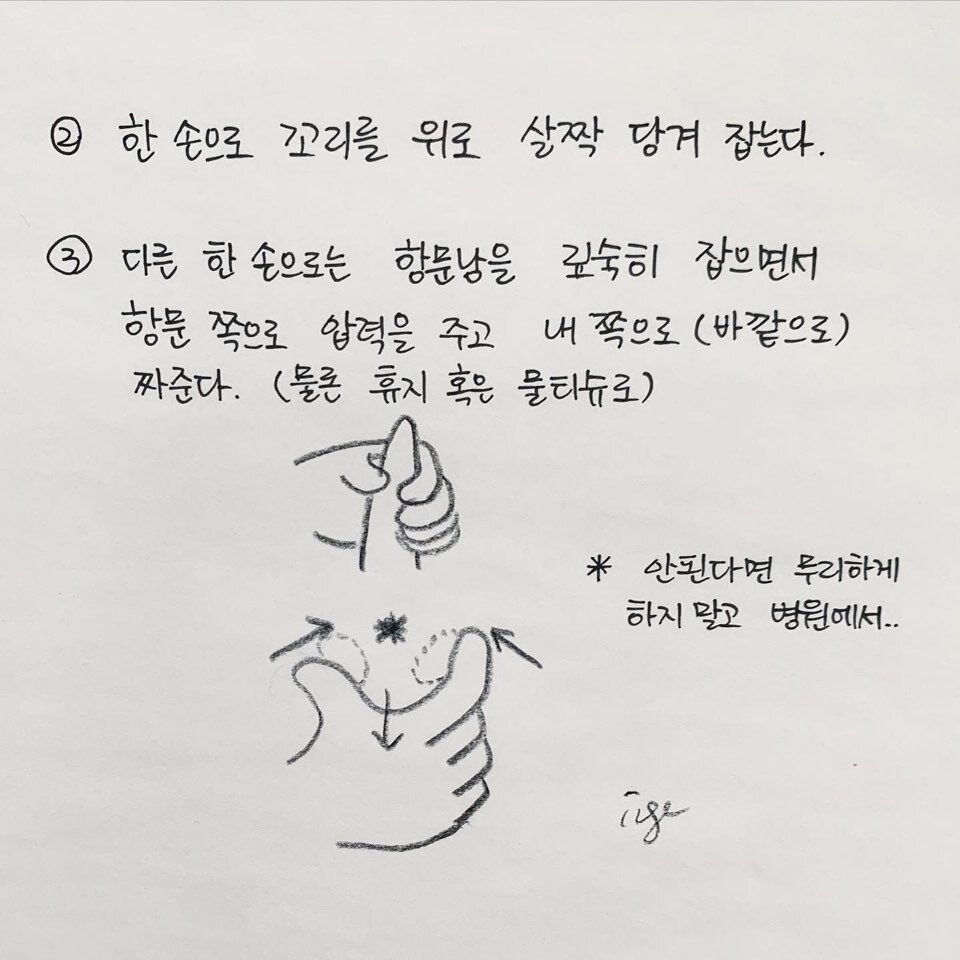 ② 한 손으로 꼬리를 위로 살짝 당겨 잡는다.
③ 다른 한 손으로는 항문낭을 깊숙히 잡으면서
항문 쪽으로 압력을 주고 내 쪽으로 (바깥으로)
짜준다. (물론 휴지 혹은 물티슈로)
* 안된다면 무리하게
하지 말고 병원에서..